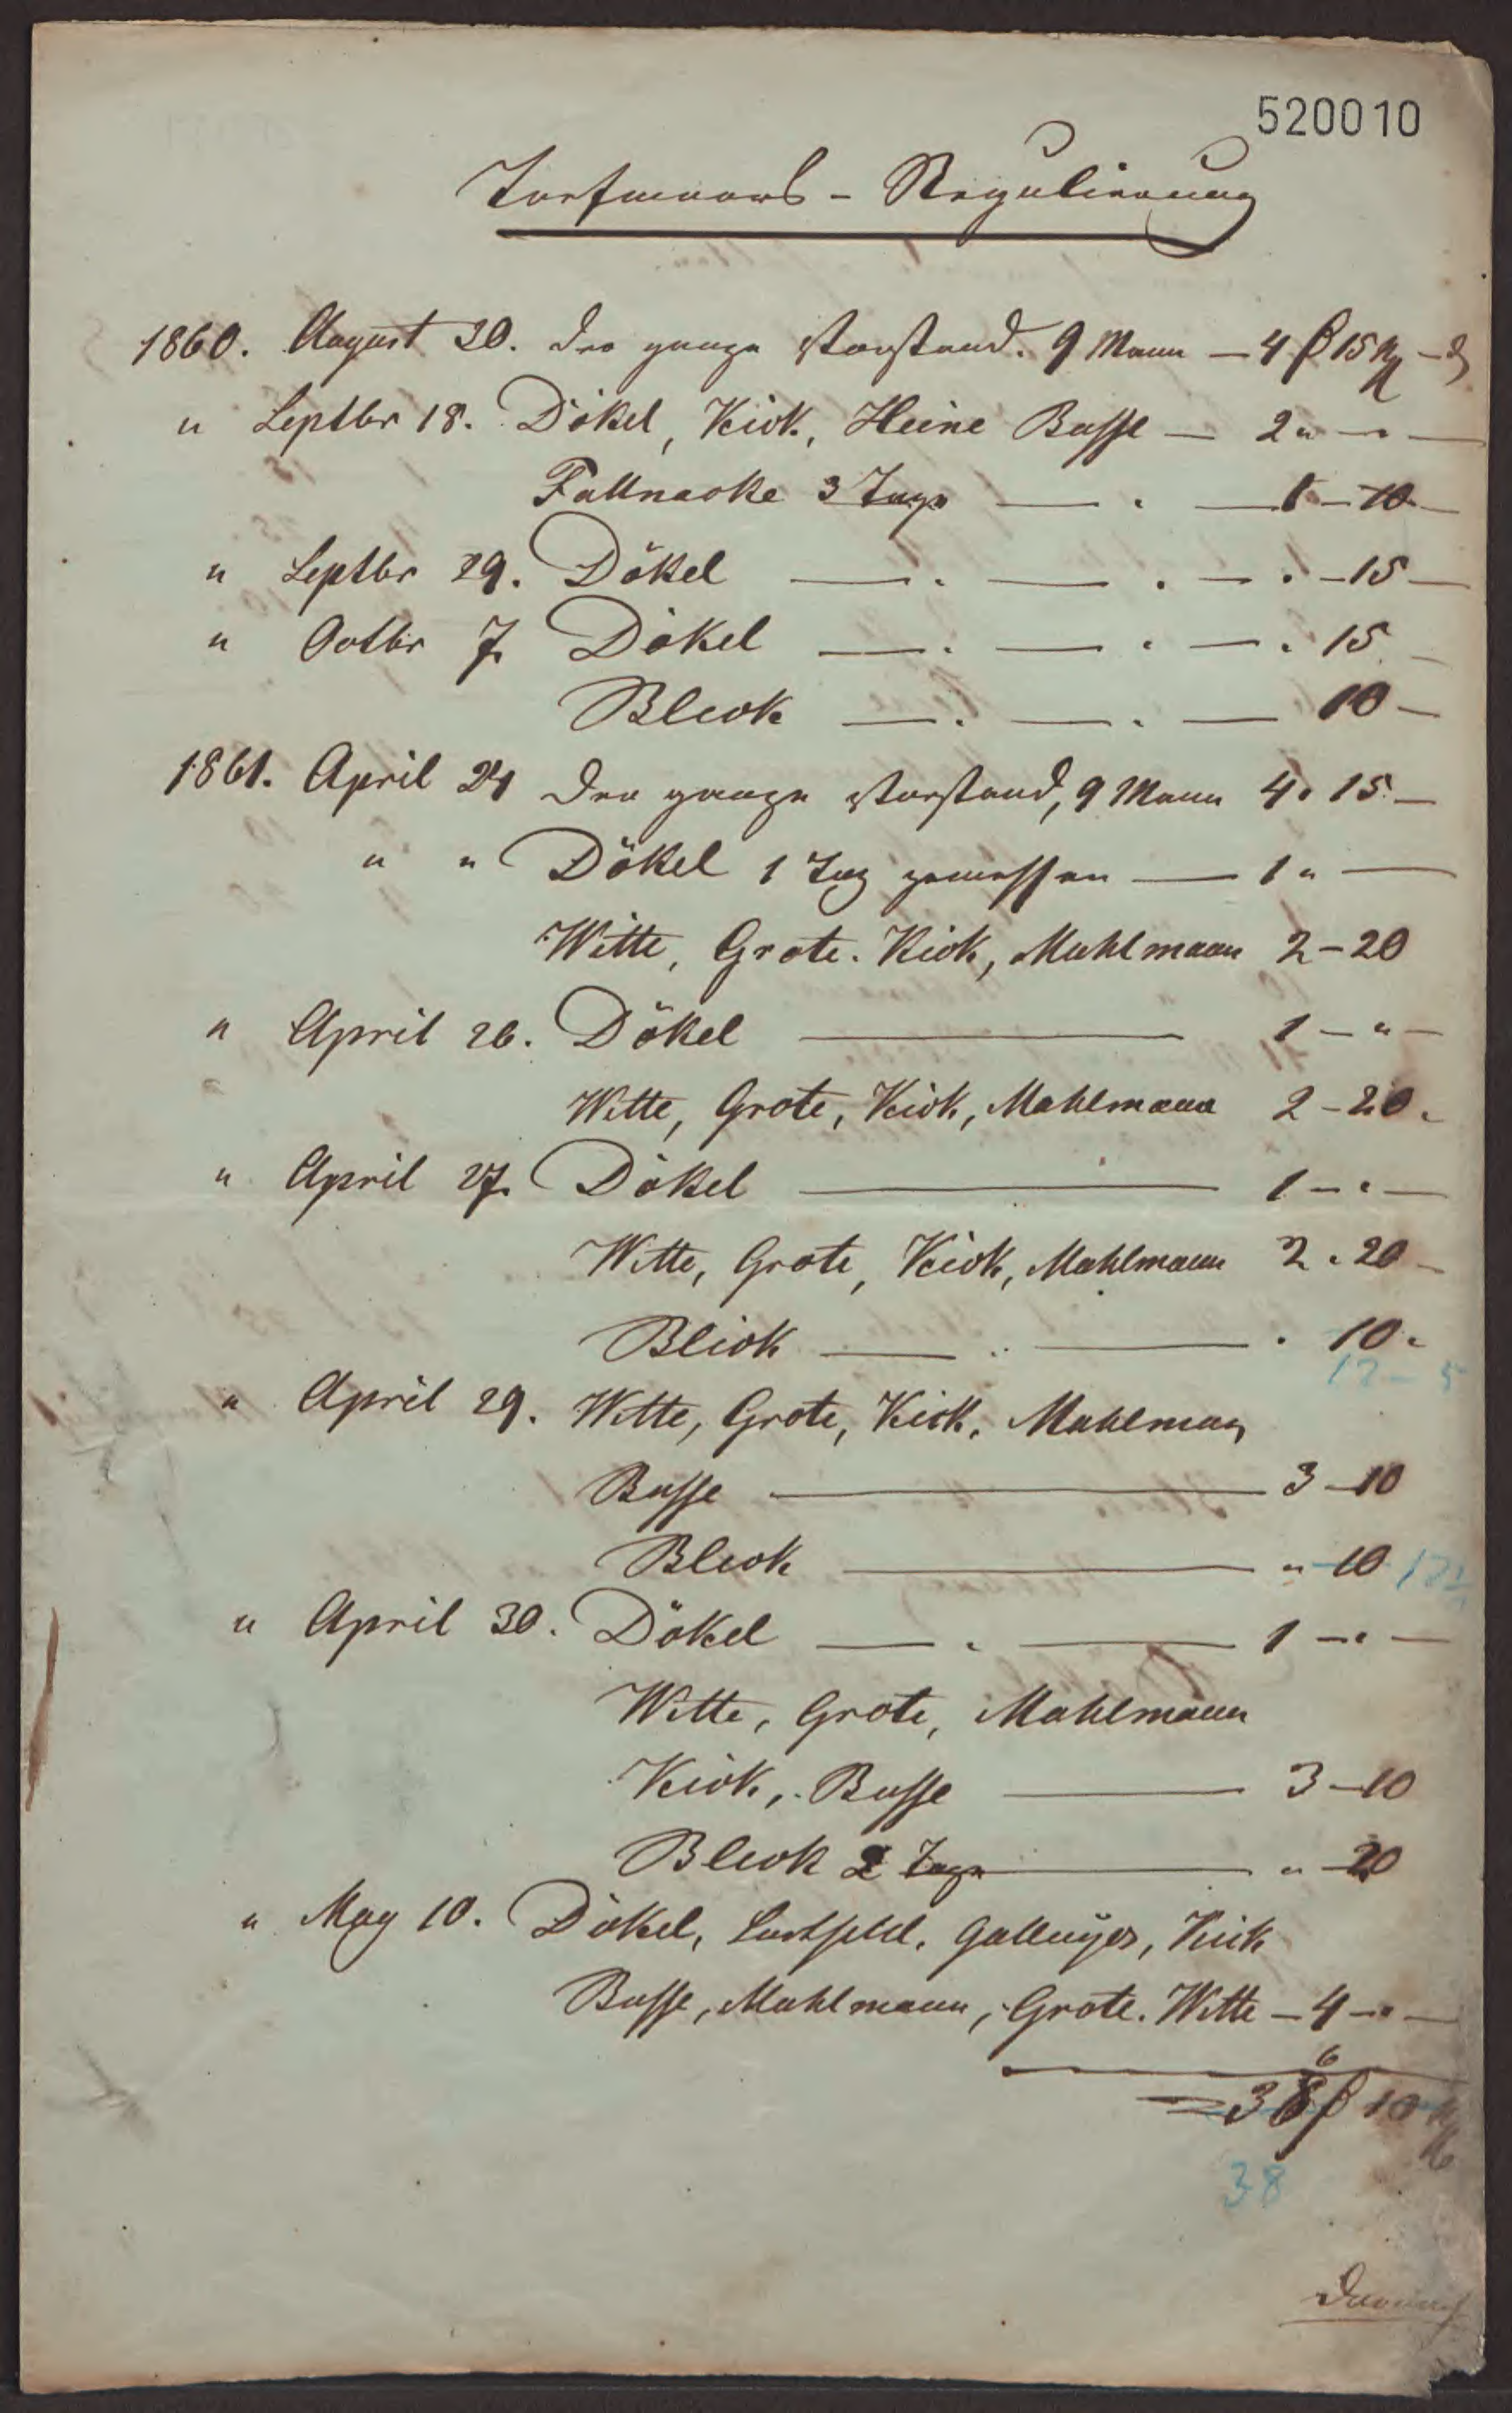 520010
Torfmoors - Regulierung
1860. August 30. der ganze Vorstand. 9 Mann — 4 ₰ 15 Ng — ₰
" Septbr 18. Dökel, Kick, Heine Busse — 2 " — " —
Fallnacke 3 Tage — " — 1 — 10 —
" Septbr 29. Dökel — " — " — " — 15 —
" Octbr 7. Dökel — " — " — " 15 —
Bleck — " — " — 10 —
1861. April 24 der ganze Vorstand, 9 Mann 4 " 15 —
" " Dökel 1 Tag gemessen — 1 " —
Witte, Grote. Kick, Mahlmann 2 — 20
" April 26. Dökel — 1 — " —
Witte, Grote, Kick, Mahlmann 2 — 20 "
" April 27. Dökel — 1 — " —
Witte, Grote, Kick, Mahlmann 2 " 20 —
Bleck — " — " 10 "
12 — 5
" April 29. Witte, Grote, Kick, Mahlmann
Busse — 3 — 10
Bleck — " — 10
" April 30. Dökel — " — 1 — " —
Witte, Grote, Mahlmann
Kick, Busse — 3 — 10
Bleck 2 Tage — " — 20
" May 10. Dökel, Kick
Busse, Mahlmann, Grote. Witte — 4 — " —
6
= 38 10
38